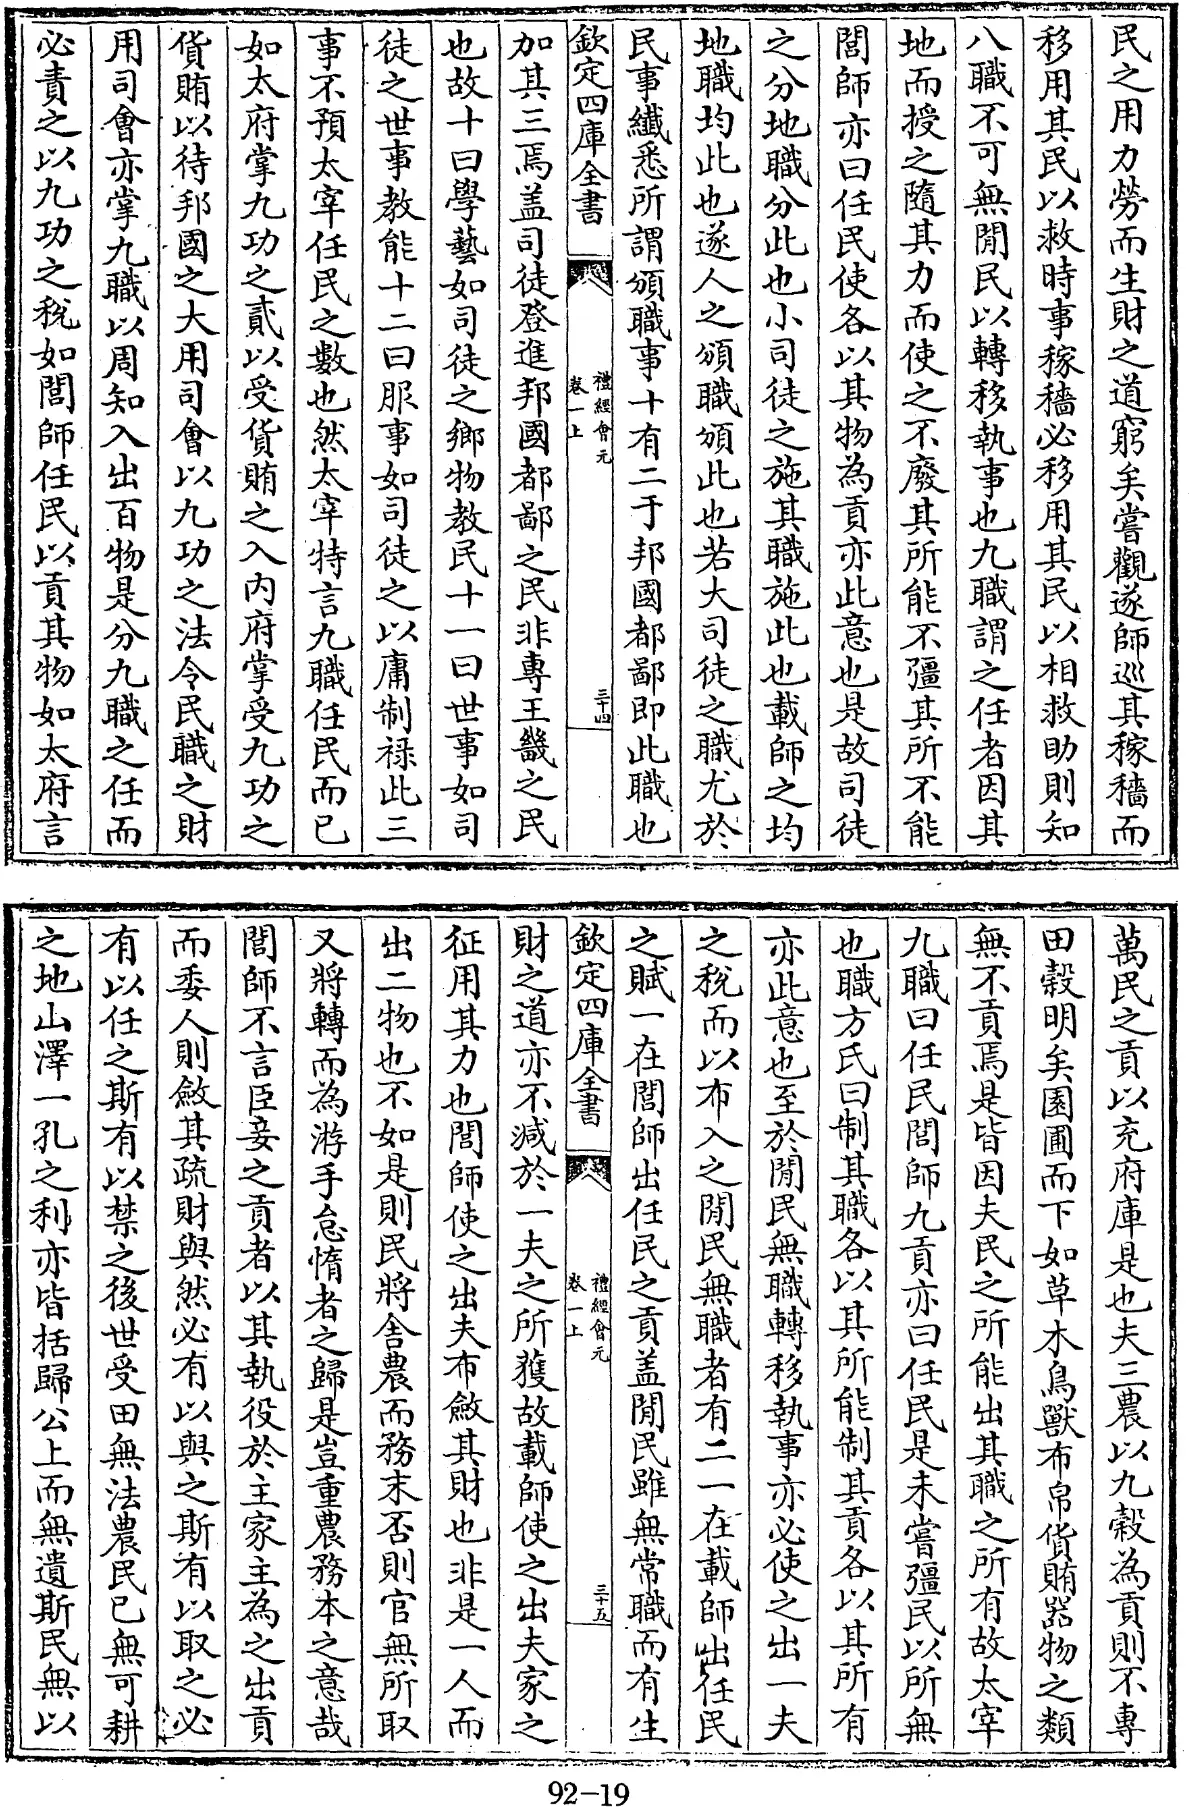 民之用力勞而生財之道窮矣嘗觀遂師巡其稼穡而
移用其民以救時事稼穡必移用其民以相救助則知
八職不可無閒民以轉移執事也九職謂之任者因其
地而授之隨其力而使之不廢其所能不彊其所不能
閭師亦曰任民使各以其物為貢亦此意也是故司徒
之分地職分此也小司徒之施其職施此也載師之均
地職均此也遂人之頒職頒此也若大司徒之職尤於
民事纎悉所謂頒職事十有二于邦國都鄙即此職也
欽定四庫全書
禮經會元
卷一上
三十四
加其三焉盖司徒登進邦國都鄙之民非專王畿之民
也故十曰學藝如司徒之鄉物教民十一曰世事如司
徒之世事教能十二曰服事如司徒之以庸制禄此三
事不預太宰任民之數也然太宰特言九職任民而已
如太府掌九功之貳以受貨賄之入内府掌受九功之
貨賄以待邦國之大用司會以九功之法令民職之財
用司會亦掌九職以周知入出百物是分九職之任而
必責之以九功之稅如閭師任民以貢其物如太府言
萬民之貢以充府庫是也夫三農以九穀為貢則不專
田穀明矣園圃而下如草木鳥獸布帛貨賄器物之類
無不貢焉是皆因夫民之所能出其職之所有故太宰
九職曰任民閭師九貢亦曰任民是未嘗彊民以所無
也職方氏曰制其職各以其所能制其貢各以其所有
亦此意也至於閒民無職轉移執事亦必使之出一夫
之稅而以布入之閒民無職者有二一在載師出任民
之賦一在閭師出任民之貢盖閒民雖無常職而有生
欽定四庫全書
禮經會元
卷一上
三十五
財之道亦不減於一夫之所獲故載師使之出夫家之
征用其力也閭師使之出夫布斂其財也非是一人而
出二物也不如是則民將舍農而務末否則官無所取
又將轉而為游手怠惰者之歸是豈重農務本之意哉
閭師不言臣妾之貢者以其執役於主家主為之出貢
而委人則斂其疏財與然必有以與之斯有以取之必
有以任之斯有以禁之後世受田無法農民已無可耕
之地山澤一孔之利亦皆括歸公上而無遺斯民無以
92-19